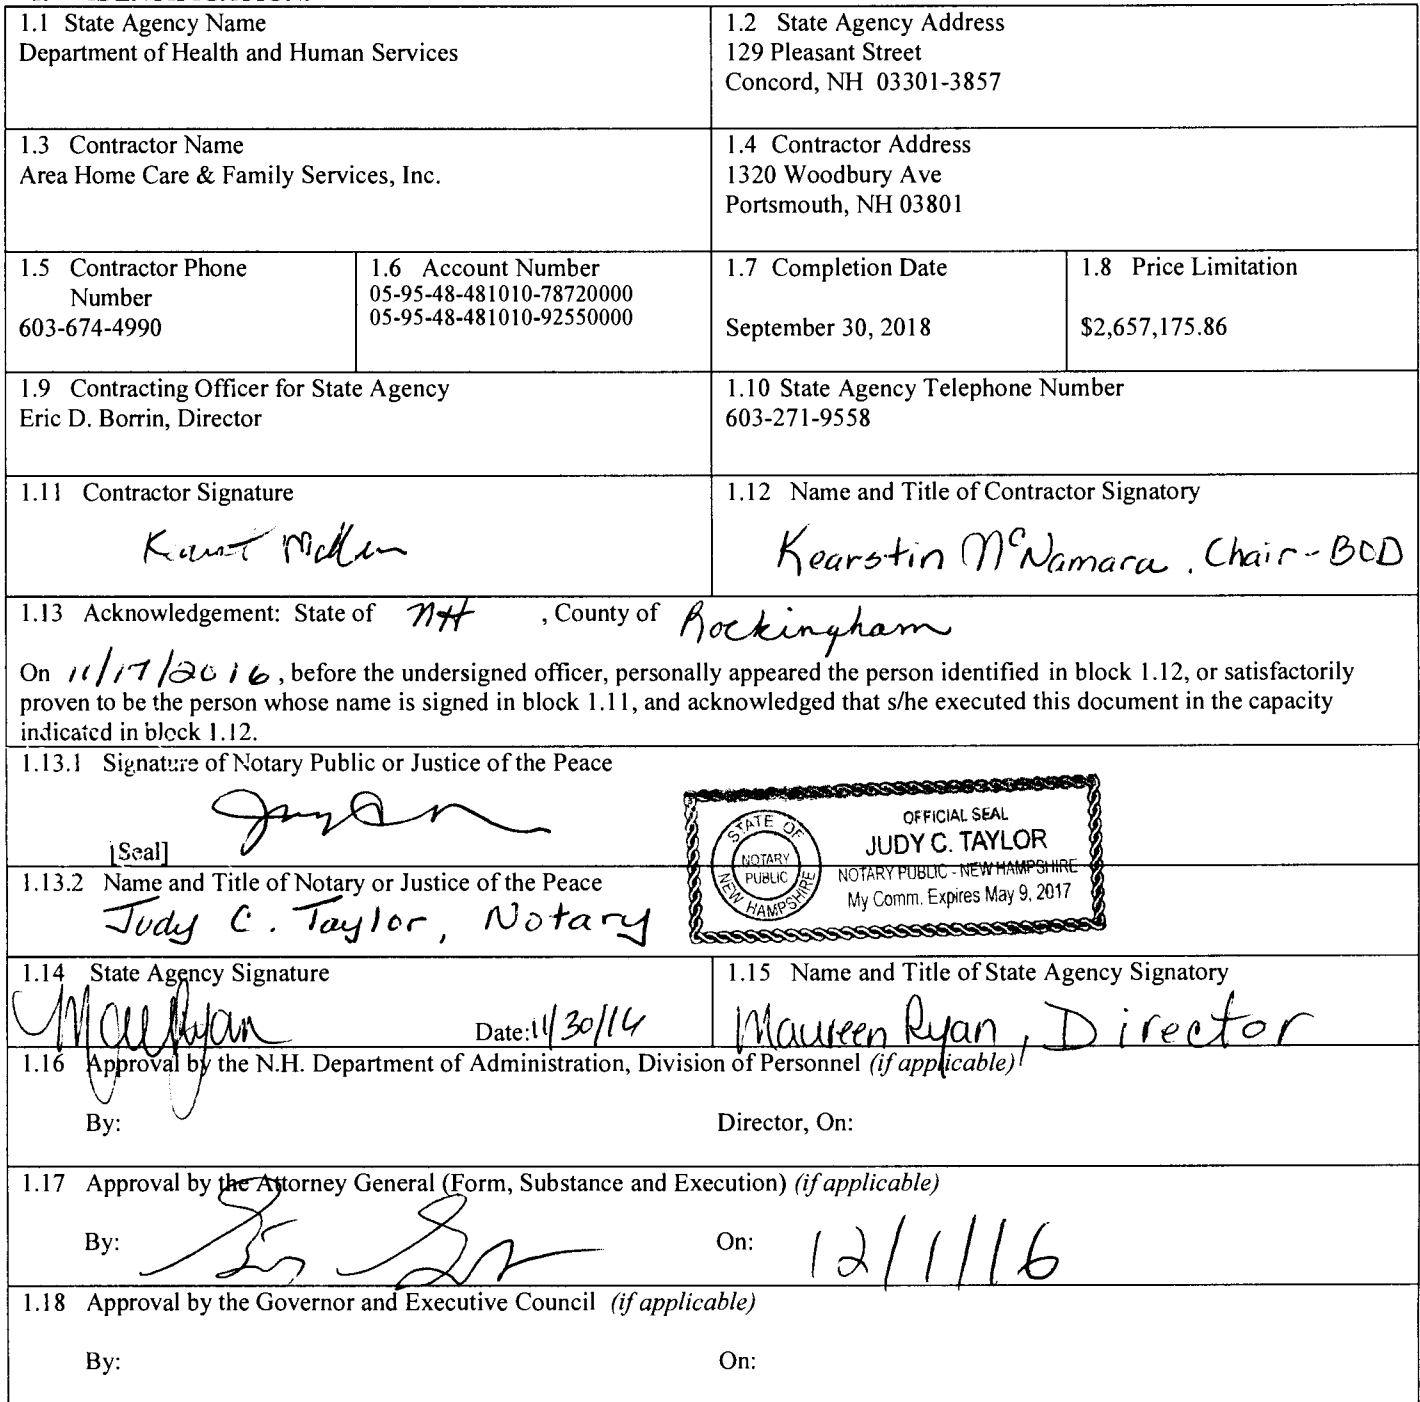 1.1 State Agency Name
Department of Health and Human Services
1.2 State Agency Address
129 Pleasant Street
Concord, NH 03301-3857
1.3 Contractor Name
Area Home Care & Family Services, Inc.
1.4 Contractor Address
1320 Woodbury Ave
Portsmouth, NH 03801
1.5 Contractor Phone
Number
603-674-4990
1.6 Account Number
05-95-48-481010-78720000
05-95-48-481010-92550000
1.7 Completion Date
September 30, 2018
1.8 Price Limitation
$2,657,175.86
1.9 Contracting Officer for State Agency
Eric D. Borrin, Director
1.10 State Agency Telephone Number
603-271-9558
1.11 Contractor Signature
1.12 Name and Title of Contractor Signatory
Kearstin McNamara, Chair-BOD
1.13 Acknowledgement: State of NH , County of Rockingham
On 11/17/2016, before the undersigned officer, personally appeared the person identified in block 1.12, or satisfactorily
proven to be the person whose name is signed in block 1.11, and acknowledged that s/he executed this document in the capacity
indicated in block 1.12.
1.13.1 Signature of Notary Public or Justice of the Peace
[Seal]
OFFICIAL SEAL
JUDY C. TAYLOR
NOTARY PUBLIC - NEW HAMPSHIRE
My Comm. Expires May 9, 2017
STATE OF
NOTARY
PUBLIC
NEW HAMPSHIRE
1.13.2 Name and Title of Notary or Justice of the Peace
Judy C. Taylor, Notary
1.14 State Agency Signature
Date: 11/30/16
1.15 Name and Title of State Agency Signatory
Maureen Ryan, Director
1.16 Approval by the N.H. Department of Administration, Division of Personnel (if applicable)
By: Director, On:
1.17 Approval by the Attorney General (Form, Substance and Execution) (if applicable)
By: On: 12/1/16
1.18 Approval by the Governor and Executive Council (if applicable)
By: On: